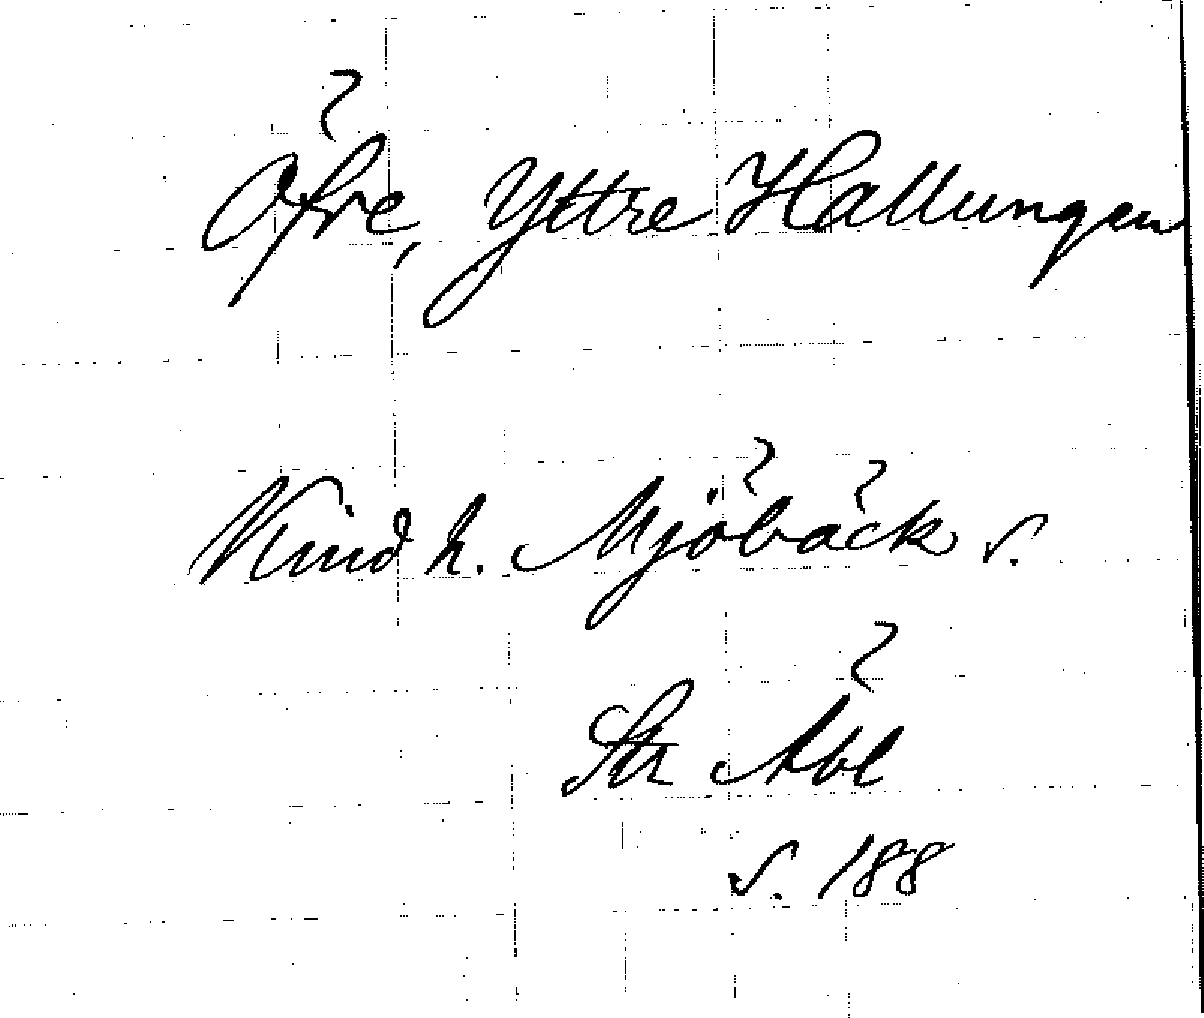 Öfre, Yttre Hallungen
Kind h. Mjöbäck s.
Str
s. 188